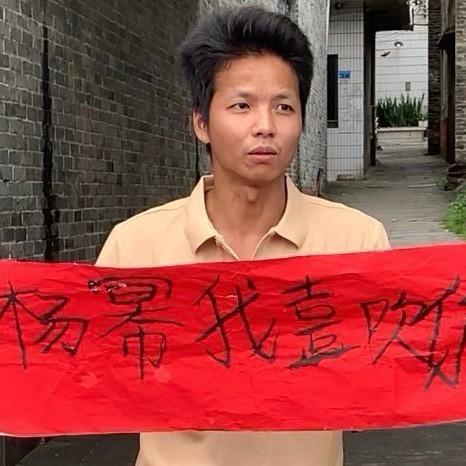 杨幂我喜